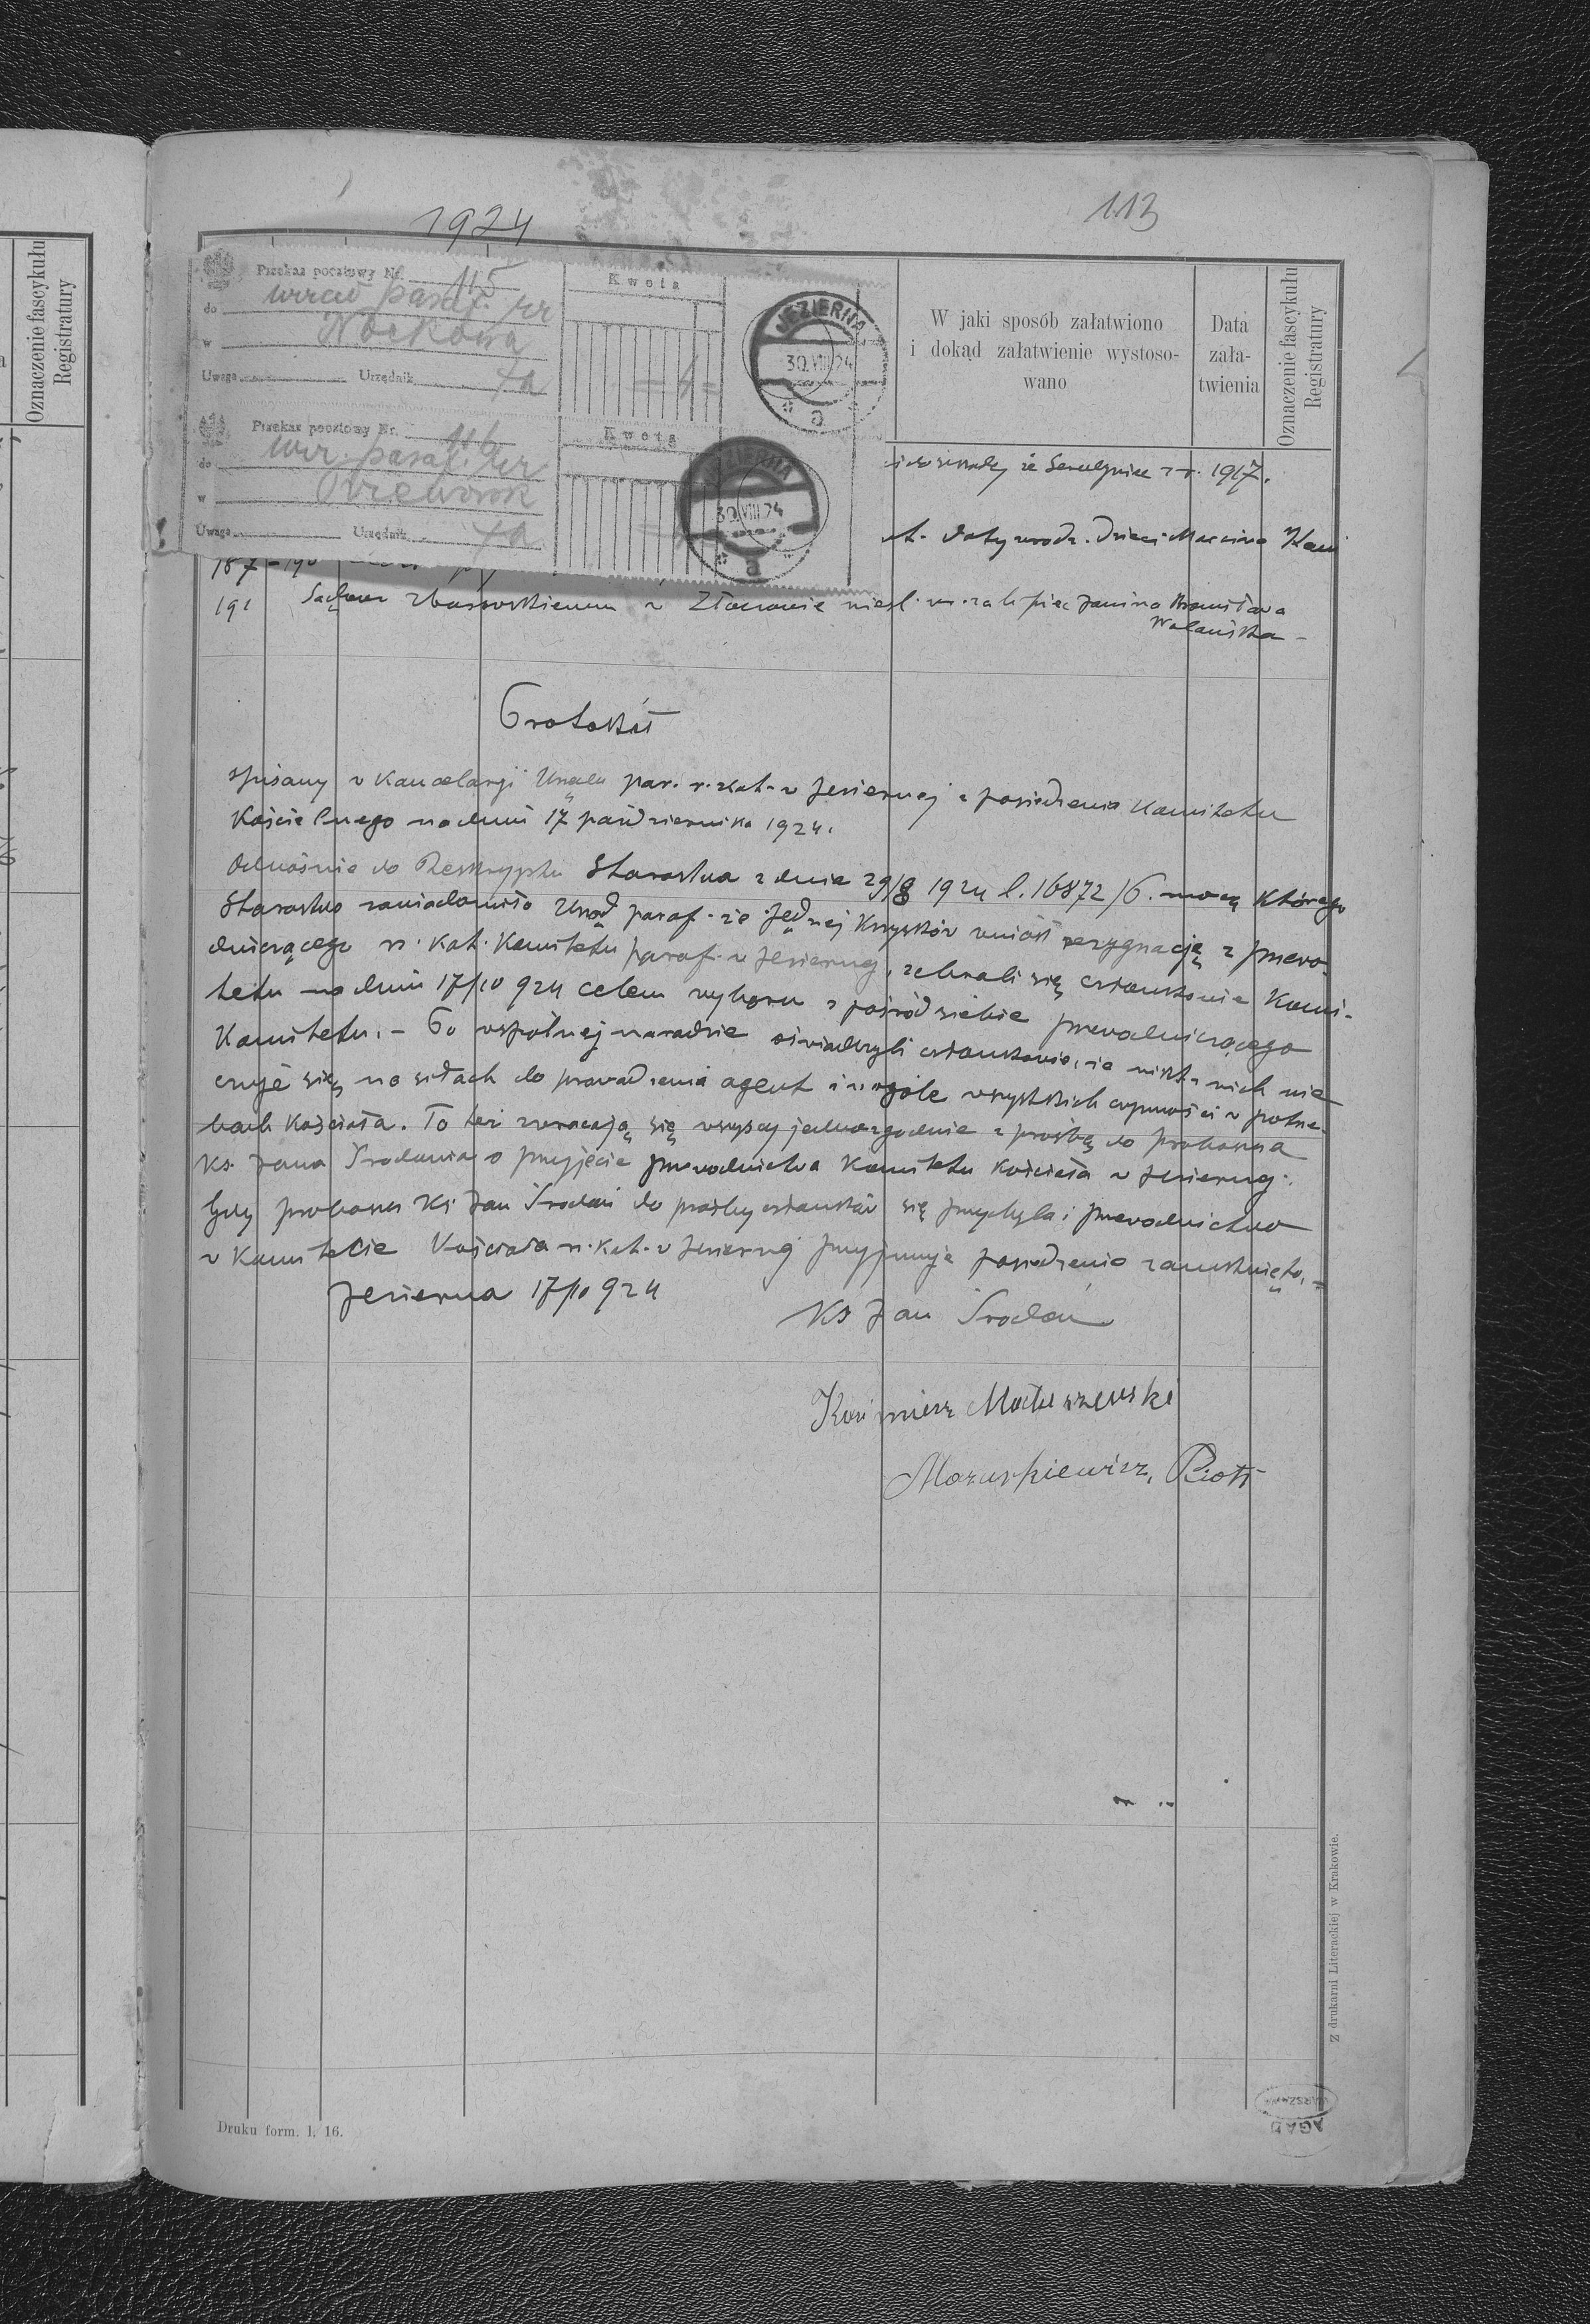 1924
113
Oznaczenie fascykułu
Registratury
Przekaz pocztowy Nr. 115
do urząd paraf. rz
w Nockowa
Uwaga Urzędnik
Kwota
JEZIERNA
30.VIII.24
a
Przekaz pocztowy Nr. 116
do urz. paraf. rz
w Przeworsk
Uwaga Urzędnik
Kwota
JEZIERNA
30.VIII.24
a
W jaki sposób załatwiono
i dokąd załatwienie wystoso-
wano
Data
zała-
twienia
Oznaczenie fascykułu
Registratury
że r. 1917.
daty urodz. dzieci Marcina
187-190
191 w Złoczowie Janina Bronisława
Wolańska -
Protokół
spisany w kancelarji Urzędu par. r. kat. w Jeziernej z posiedzenia Komitetu
Kościelnego w dniu 17 października 1924.
Odnośnie do Reskryptu Starostwa z dnia 29/8 1924 l. 16872/6. mocą którego
Starostwo zawiadomiło Urząd paraf. że Jędrzej Krzysków wniósł rezygnację z przewo-
dniczącego r. kat. Komitetu paraf. w Jeziernej, zebrali się członkowie Komi-
tetu w dniu 17/10 924 celem wyboru z pośród siebie przewodniczącego
Komitetu. - Po wspólnej naradzie oświadczyli członkowie, że nikt z nich nie
czuje się na siłach do prowadzenia agend i wogóle wszystkich czynności w potrze-
bach kościoła. To też zwracają się wszyscy jednozgodnie z prośbą do proboszcza
Ks. Jana Środonia o przyjęcie przewodnictwa Komitetu kościoła w Jeziernej.
Gdy proboszcz Ks Jan Środoń do prośby członków się przychyla i przewodnictwo
w Komitecie Kościoła r. kat. w Jeziernej przyjmuje posiedzenie zamknięto. -
Jezierna 17/10 924
Ks Jan Środoń
Kazimierz Matuszewski
Mozuszkiewicz, Piotr
Druku form. l. 16.
Z drukarni Literackiej w Krakowie.
AGAD
WARSZAWA